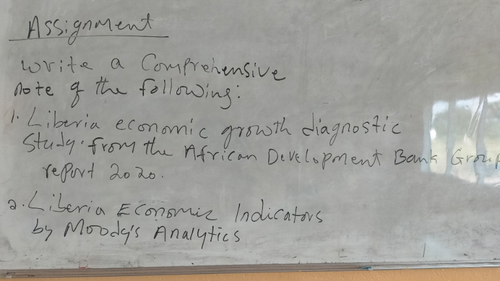 Assignment
Write a Comprehensive
note of the following:
1. Liberia economic growth diagnostic
Study from the African Development Bank Group
report 2020.
2. Liberia Economic Indicators
by Moody's Analytics